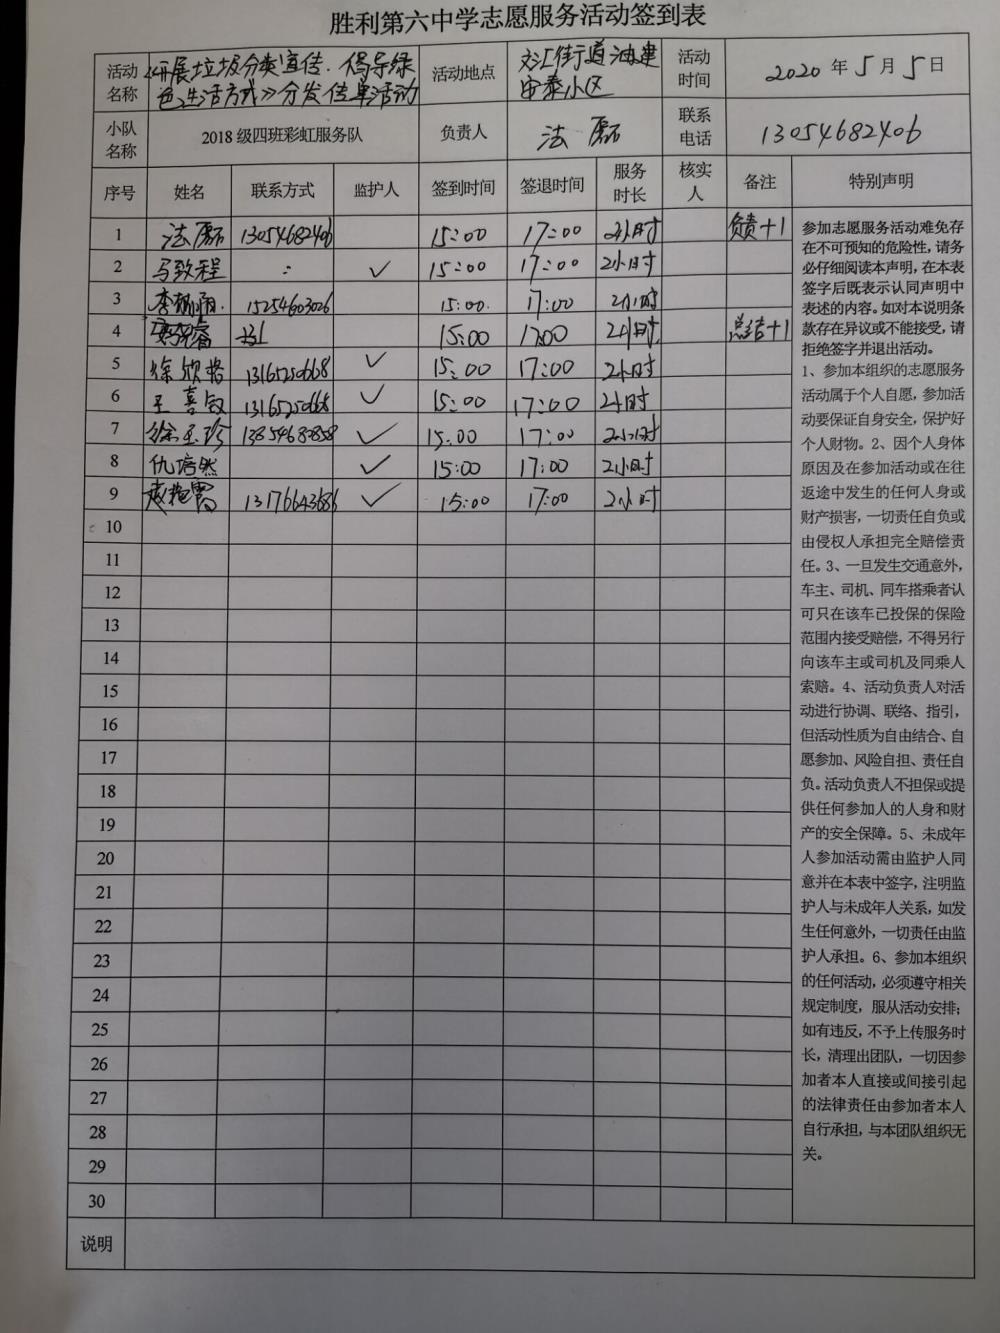 胜利第六中学志愿服务活动签到表
活动名称 《开展垃圾分类宣传.倡导绿色生活方式》分发传单活动 活动地点 文汇街道油建安泰小区 活动时间 2020年5月5日
小队名称 2018级四班彩虹服务队 负责人 法磊 联系电话 13054682406
序号 姓名 联系方式 监护人 签到时间 签退时间 服务时长 核实人 备注 特别声明
1 法磊 13054682406 15:00 17:00 2小时 负责+1
2 马致程 ✓ 15:00 17:00 2小时
3 15254603026 15:00 17:00 2小时
4 15:00 17:00 2小时 总结+1
5 徐欣怡 13165250668 ✓ 15:00 17:00 2小时
6 王喜 13165250668 ✓ 15:00 17:00 2小时
7 徐玉珍 ✓ 15:00 17:00 2小时
8 仇培然 ✓ 15:00 17:00 2小时
9 13176643686 ✓ 15:00 17:00 2小时
10
11
12
13
14
15
16
17
18
19
20
21
22
23
24
25
26
27
28
29
30
参加志愿服务活动难免存
在不可预知的危险性,请务
必仔细阅读本声明,在本表
签字后既表示认同声明中
表述的内容。如对本说明条
款存在异议或不能接受,请
拒绝签字并退出活动。
1、参加本组织的志愿服务
活动属于个人自愿,参加活
动要保证自身安全,保护好
个人财物。2、因个人身体
原因及在参加活动或在往
返途中发生的任何人身或
财产损害,一切责任自负或
由侵权人承担完全赔偿责
任。3、一旦发生交通意外,
车主、司机、同车搭乘者认
可只在该车已投保的保险
范围内接受赔偿,不得另行
向该车主或司机及同乘人
索赔。4、活动负责人对活
动进行协调、联络、指引,
但活动性质为自由结合、自
愿参加、风险自担、责任自
负。活动负责人不担保或提
供任何参加人的人身和财
产的安全保障。5、未成年
人参加活动需由监护人同
意并在本表中签字,注明监
护人与未成年人关系,如发
生任何意外,一切责任由监
护人承担。6、参加本组织
的任何活动,必须遵守相关
规定制度,服从活动安排;
如有违反,不予上传服务时
长,清理出团队,一切因参
加者本人直接或间接引起
的法律责任由参加者本人
自行承担,与本团队组织无
关。
说明